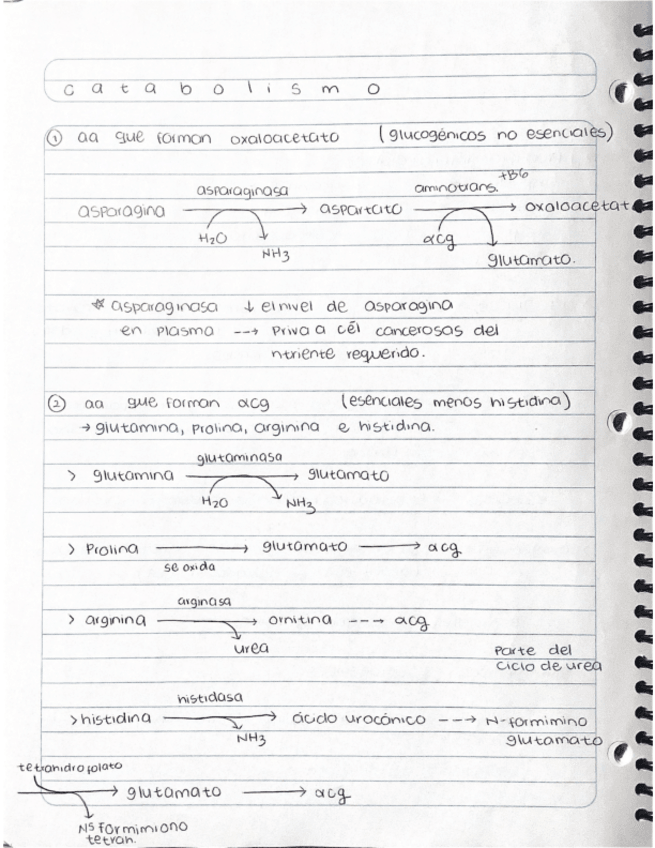 catabolismo
① aa que forman oxaloacetato (glucogénicos no esenciales)
asparaginasa aminotrans. +B6
asparagina → aspartato → oxaloacetat
H2O NH3 αcg glutamato.
* asparaginasa ↓ el nivel de asparagina
en plasma --→ Priva a cél cancerosas del
ntriente requerido.
② aa que forman αcg (esenciales menos histidina)
→ glutamina, prolina, arginina e histidina.
glutaminasa
> glutamina → glutamato
H2O NH3
> Prolina → glutamato → αcg
se oxida
arginasa
> arginina → ornitina --→ αcg
urea
Parte del
ciclo de urea
histidasa
> histidina → ácido urocánico --→ N-formimino
NH3 glutamato
tetrahidrofolato
→ glutamato → αcg
N5 formimiono
tetran.